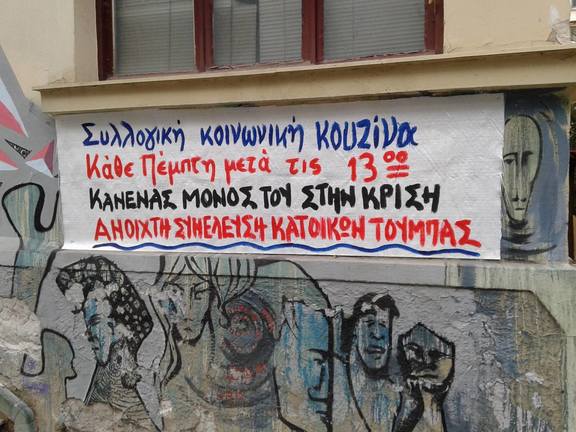 Συλλογική κοινωνική κουζίνα
Κάθε Πέμπτη μετά τις 13°°
ΚΑΝΕΝΑΣ ΜΟΝΟΣ ΤΟΥ ΣΤΗΝ ΚΡΙΣΗ
ΑΝΟΙΧΤΗ ΣΥΝΕΛΕΥΣΗ ΚΑΤΟΙΚΩΝ ΤΟΥΜΠΑΣ